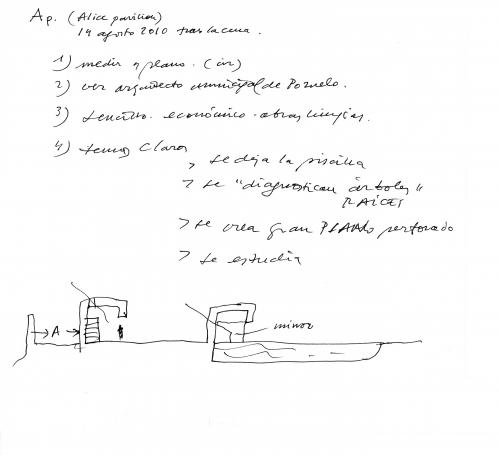 Ap. (Alice pavilion)
14 agosto 2010 tras la cena.
1) medir y plano. (ir)
2) ver arquitecto municipal de Pozuelo.
3) sencillo. económico. obras limpias.
4) temas claros
> se deja la piscina
> se "diagnostican árboles"
RAÍCES
> se crea gran PLANO perforado
> se estudia
A